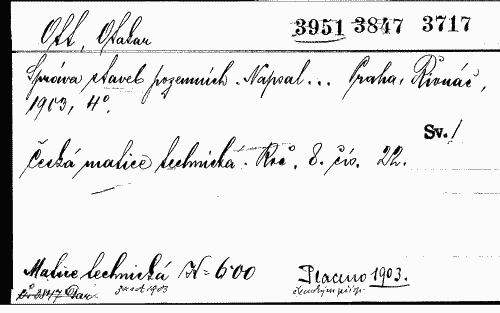 Ott, Otakar 3951 3847 3717
Správa staveb pozemních. Napsal... Praha, Řivnáč,
1903, 4°.
Sv. 1
Česká matice technická. Roč. 8. čís. 22.
Matice technická K = 6·00 Placeno 1903.
3847 1903